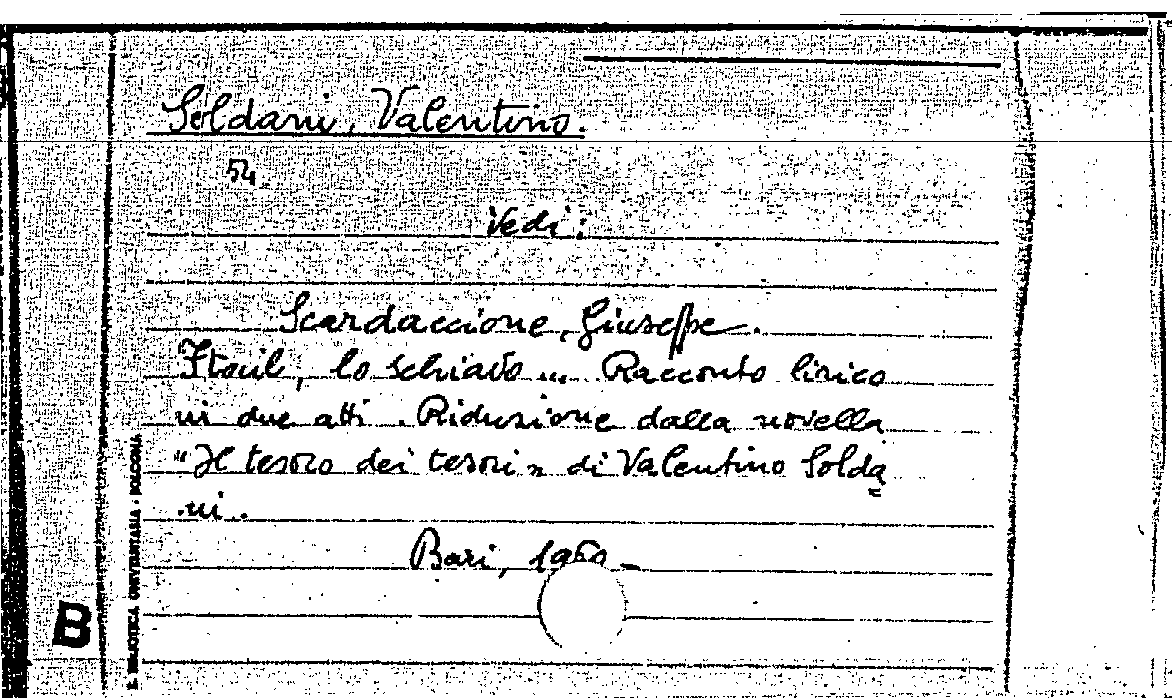 Soldani, Valentino.
54
Vedi:
Scardaccione, Giuseppe.
Itail, lo schiavo ... Racconto lirico
in due atti. Riduzione dalla novella
"Il tesoro dei tesori" di Valentino Solda
ni.
Bari, 1960 -
B
B. BIBLIOTECA UNIVERSITARIA - BOLOGNA